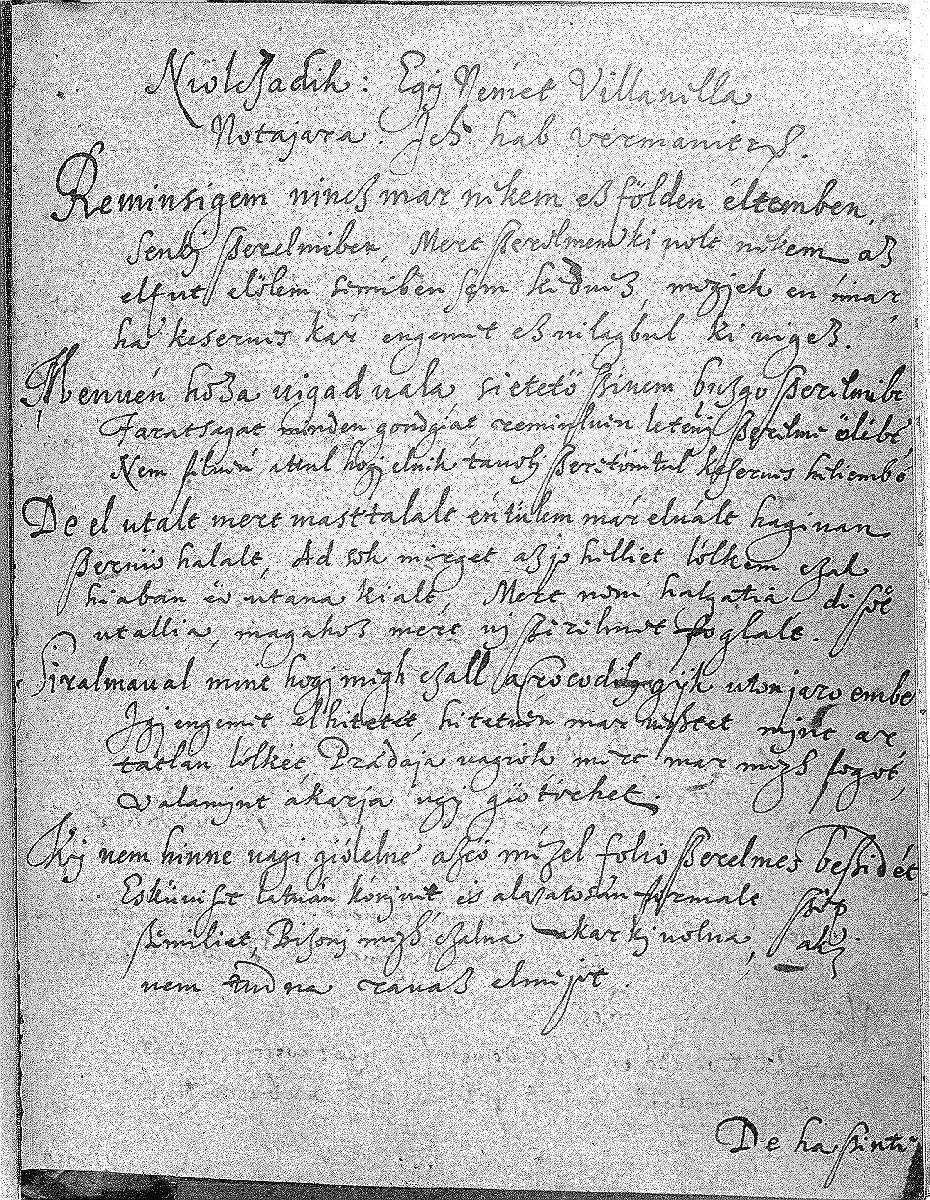 Niólczadik: Egÿ Német Villanella
Notajara. Ich hab vermaniers.
Reminsigem nincz mar nikem ez földen éltemben,
Senkj szerelmiben, Mert szerelmem ki volt nikem az
elfut elölem simiben sem kiduez, megjek en imar
ha keserues kár engemet ez vilagbul ki vigez.
Menuén hoza vigad vala sietető sziuem buzgo szerelmibe
Faratsagat minden gondgiat reminluin letenj szerelme ölebe
Nem siluen attul hogj elnik tauolj szeretömtül keserues
De el utált mert mast talalt éntülem már elvált hagivan
szerniö halalt, Ad sok mirget azjo hilliet lölkem czak
hiaban io utana kialt, Mert nem halgatia di söt
utallia, magahoz mert uj szerelmet foglalt.
Siralmáual mint hogj migh czall a crocodil gyik uton jaro embe
Igj engemet el hitetét, hitetuén mar vesztet mjnt ar
tatlan lölket, Prádája vagiok mert mar megh fogot,
Valamjnt akarja ugj giötörhet.
Kÿ nem hinne uagi giólelne azió mizel folio szerelmes beszidét
Esküuisit latuán könjuét és alazatosán formalt szép
szemiliet, Bizonj megh czalna akar kj uolna, aki
nem tudna rauaz elmijet.
De ha szinti